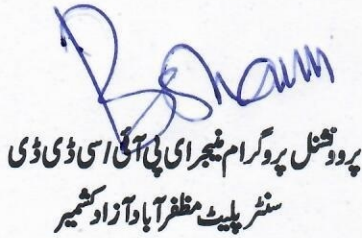 پروونشل پروگرام منیجر ای پی آئی / سی ڈی ڈی
سنٹر پلیٹ مظفرآباد آزاد کشمیر